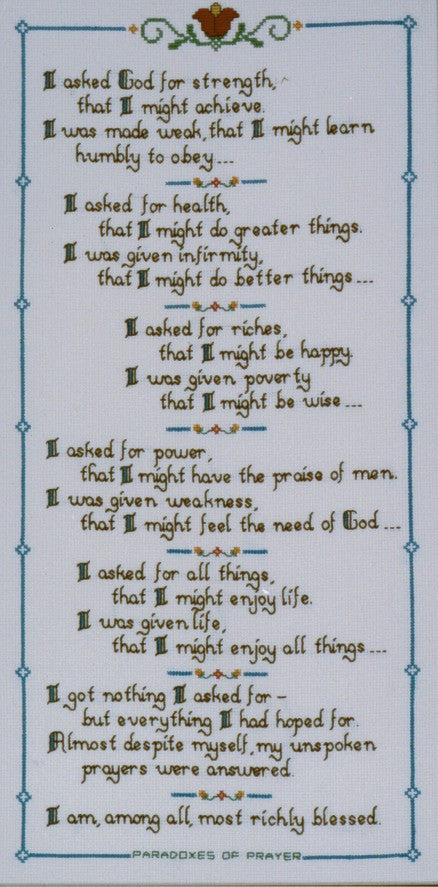 I asked God for strength,
that I might achieve.
I was made weak, that I might learn
humbly to obey...
I asked for health,
that I might do greater things.
I was given infirmity,
that I might do better things...
I asked for riches,
that I might be happy.
I was given poverty
that I might be wise...
I asked for power,
that I might have the praise of men.
I was given weakness,
that I might feel the need of God...
I asked for all things,
that I might enjoy life.
I was given life,
that I might enjoy all things...
I got nothing I asked for –
but everything I had hoped for.
Almost despite myself, my unspoken
prayers were answered.
I am, among all, most richly blessed.
PARADOXES OF PRAYER